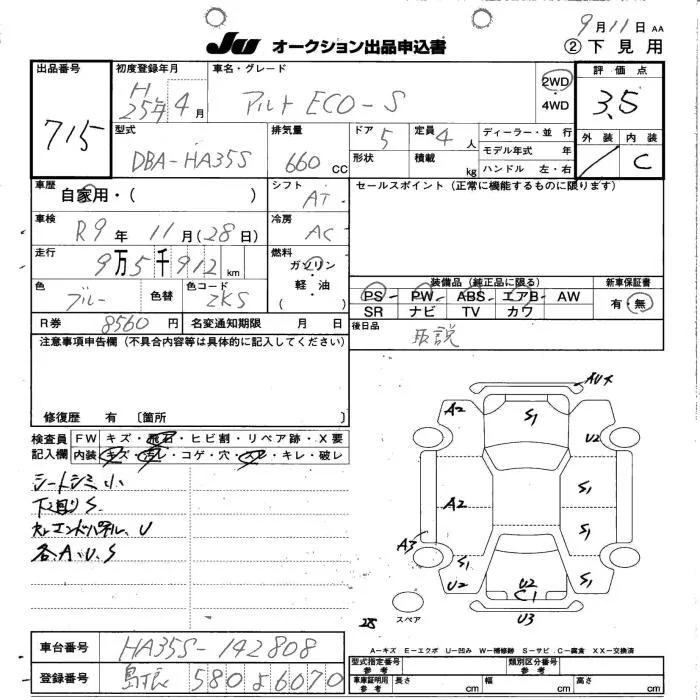 9月11日 AA
JU オークション出品申込書
② 下見用
出品番号
715
初度登録年月
H25年4月
車名・グレード
アルト ECO-S
2WD
・
4WD
評価点
3.5
外装
内装
C
型式
DBA-HA35S
排気量
660 CC
ドア
5
定員
4人
形状
積載
kg
ディーラー・並行
モデル年式 年
ハンドル 左・右
車歴
自家用・( )
シフト
AT
セールスポイント(正常に機能するものに限ります)
車検
R9年11月(28日)
冷房
AC
走行
9万5千912km
燃料
ガソリン
軽・油
( )
色
ブルー
色替
色コード
ZKS
装備品(純正品に限る)
新車保証書
PS PW ABS エアB AW
SR ナビ TV カワ
有・無
R券
8560円
名変通知期限 月 日
後日品
取説
注意事項申告欄(不具合内容等は具体的に記入してください)
修復歴 有〔箇所 〕
検査員記入欄
FW キズ・飛石・ヒビ割・リペア跡・X要
内装 キズ・汚レ・コゲ・穴・スレ・キレ・破レ
シートシミ小
下廻りS
エンドパネル、U
各A、U、S
AUX
A2
S1
U2
S1
A2
S1
A3
S1
U2
U2
C1
S1
U3
28
スペア
A-キズ E-エクボ U-凹み W-補修跡 S-サビ C-腐食 XX-交換済
車台番号
HA35S-142808
登録番号
580 6070
型式指定番号
参考
類別区分番号
参考
車庫証明用
参考
長さ cm
幅 cm
高さ cm